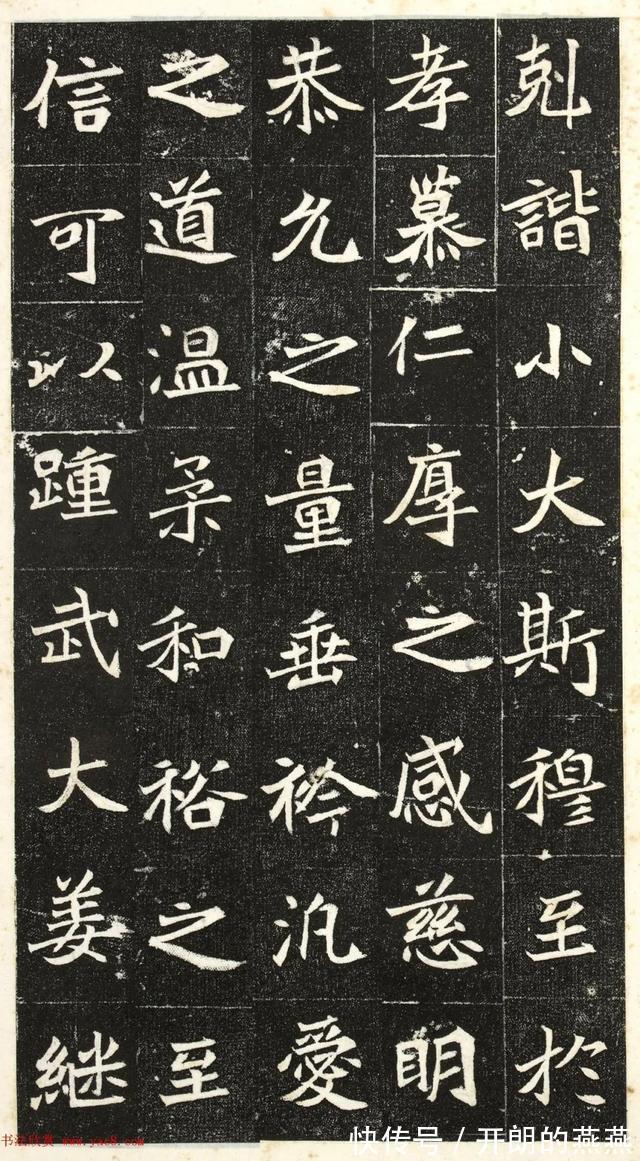 剋諧小大斯穆至於
孝慕仁厚之感慈明
恭允之量垂衿汎愛
之道温柔和裕之至
信可以踵武大姜継
书法欣赏 www.yac8.com
快传号 / 开朗的燕燕